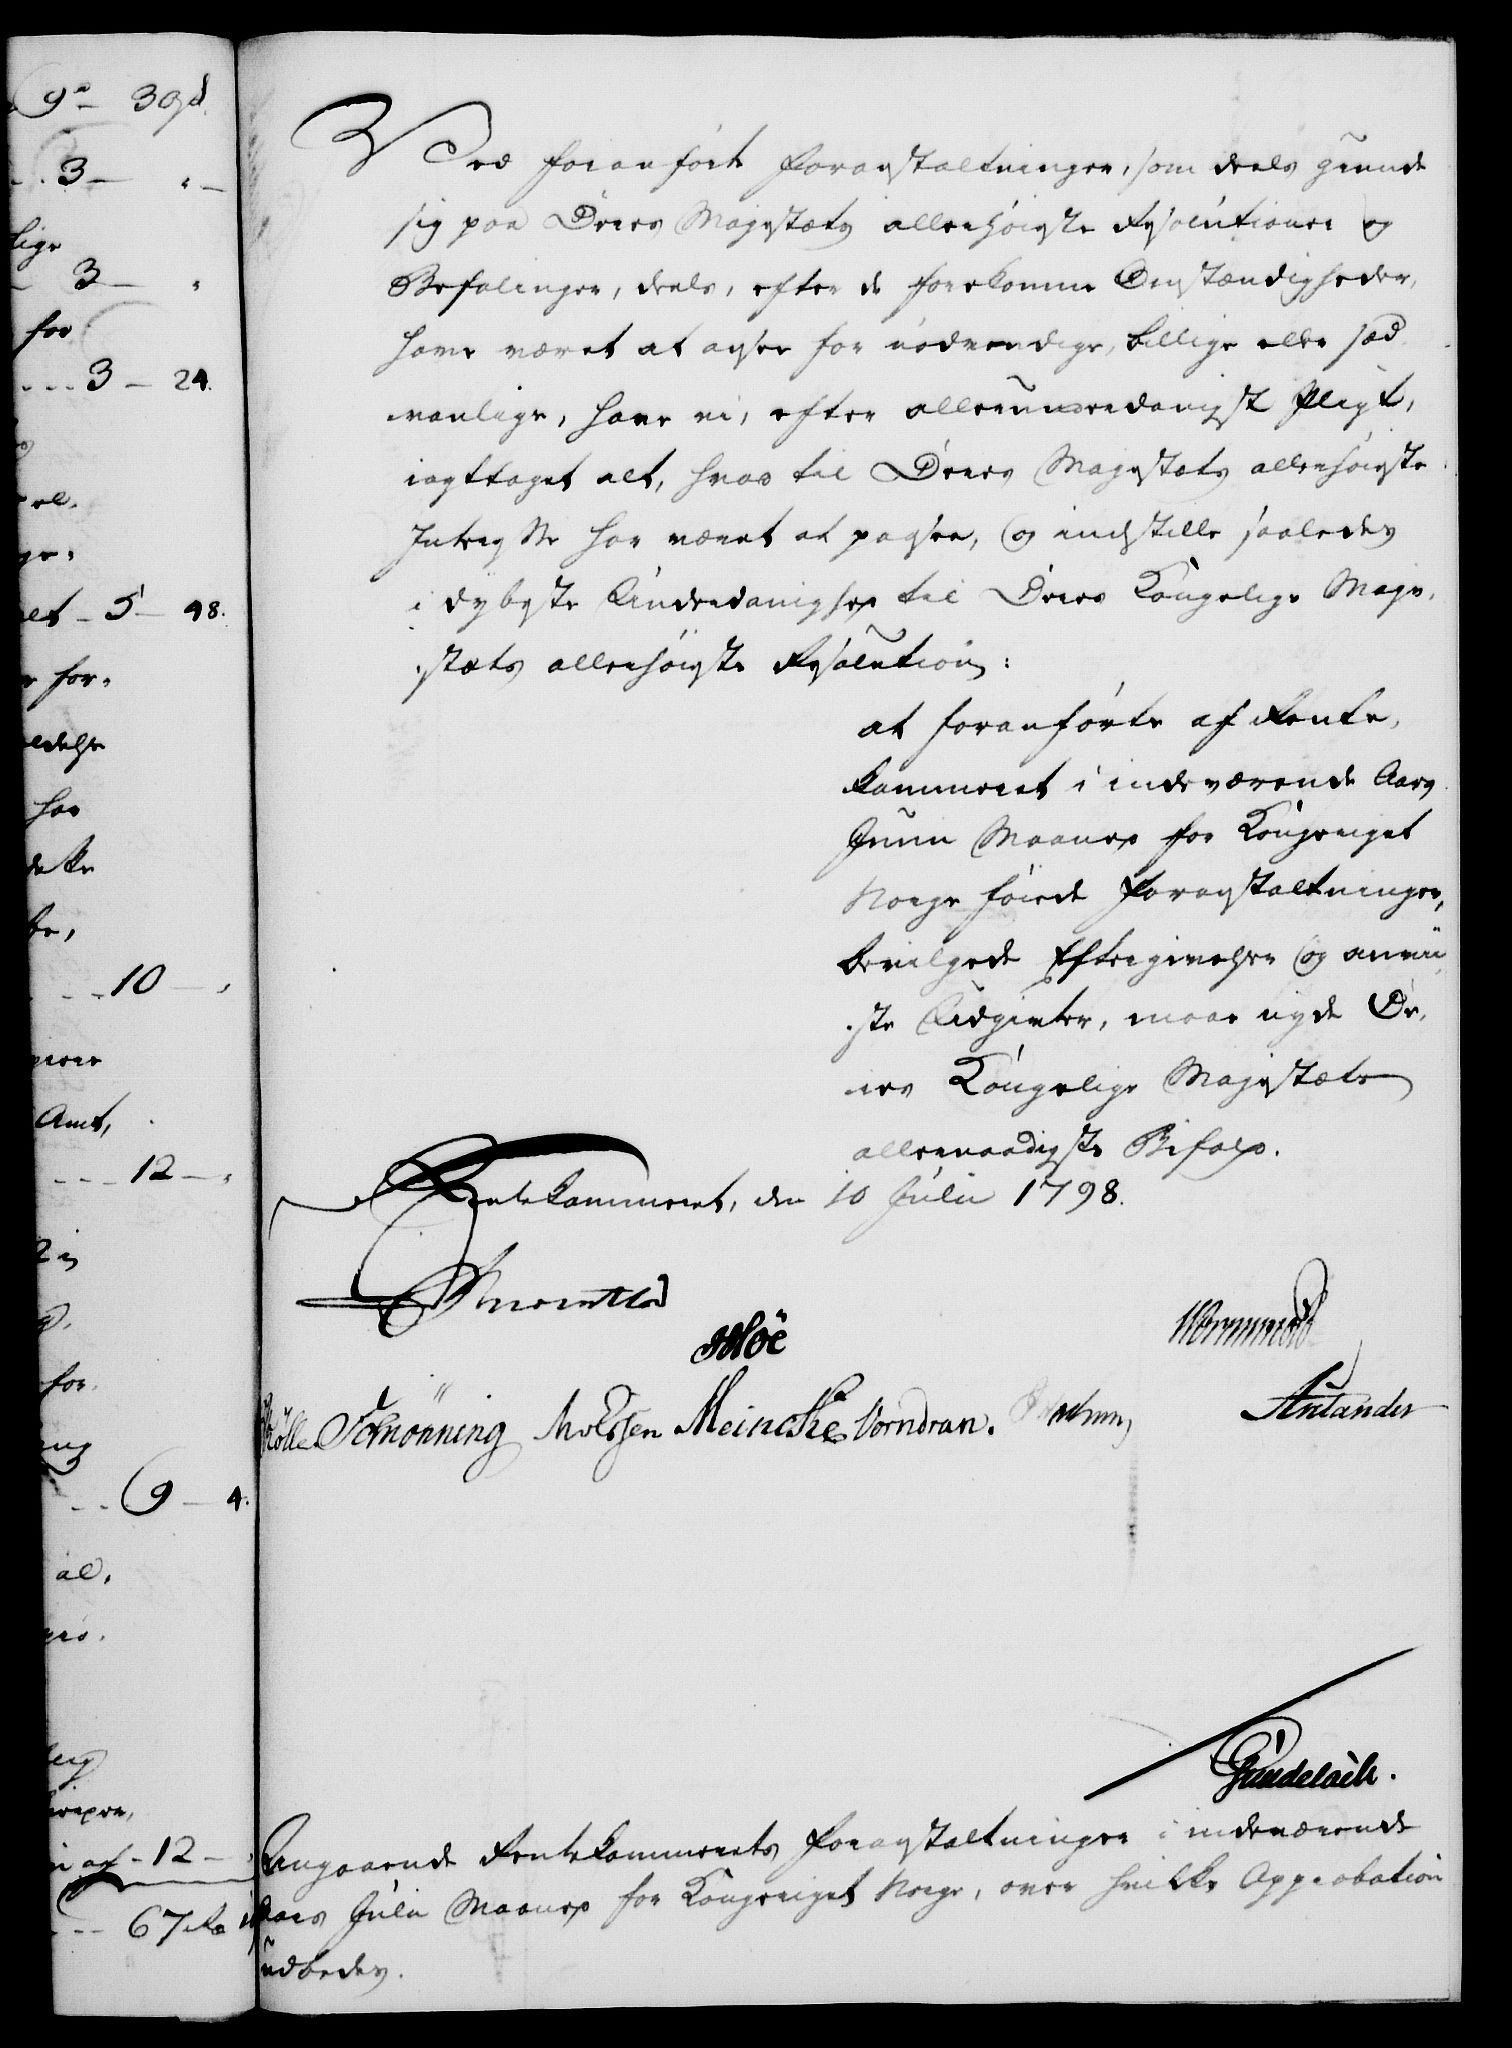 9 - 30 ß.
3 -
lige
3 -
for
3 - 24.
el,
ge,
let - 5 - 48.
r for-
eldelse
har
dette
te,
10 -
Amt,
12 -
for
ng
9 - 4.
al,
berg
af - 12 -
67 rd
Ved foranførte Foranstaltninger, som deels grunde
sig paa Deres Majestæts allerhøieste Resolutioner og
Befalinger, deels, efter de forekomne Omstændigheder,
have været at ansee for nødvendige, billige eller sæd
vanlige, have vi, efter allerunderdanigst Pligt,
iagttaget alt, hvad til Deres Majestæts allerhøieste
Interesse har været at paasee, og indstille saaledes
i dybeste Underdanighed til Deres Kongelige Maje-
stæts allerhøieste Resolution:
at foranførte af Rente-
kammeret i indeværende Aars
Junii Maaned for Kongeriget
Norge føiede Foranstaltninger,
bevilgede Eftergivelser og anvii
ste Udgivter, maae nyde De-
res Kongelige Majestæts
allernaadigste Bifald.
Rentekammeret, den 10 Julii 1798.
Reventlow
Hoë
Wormskiold
Schønning Meincke Vorndran.
Knudsen
Gundelach.
Angaaende Rentekammerets Foranstaltninger i indeværende
Aars Julii Maaned for Kongeriget Norge, over hvilke Approbation
udbedes.